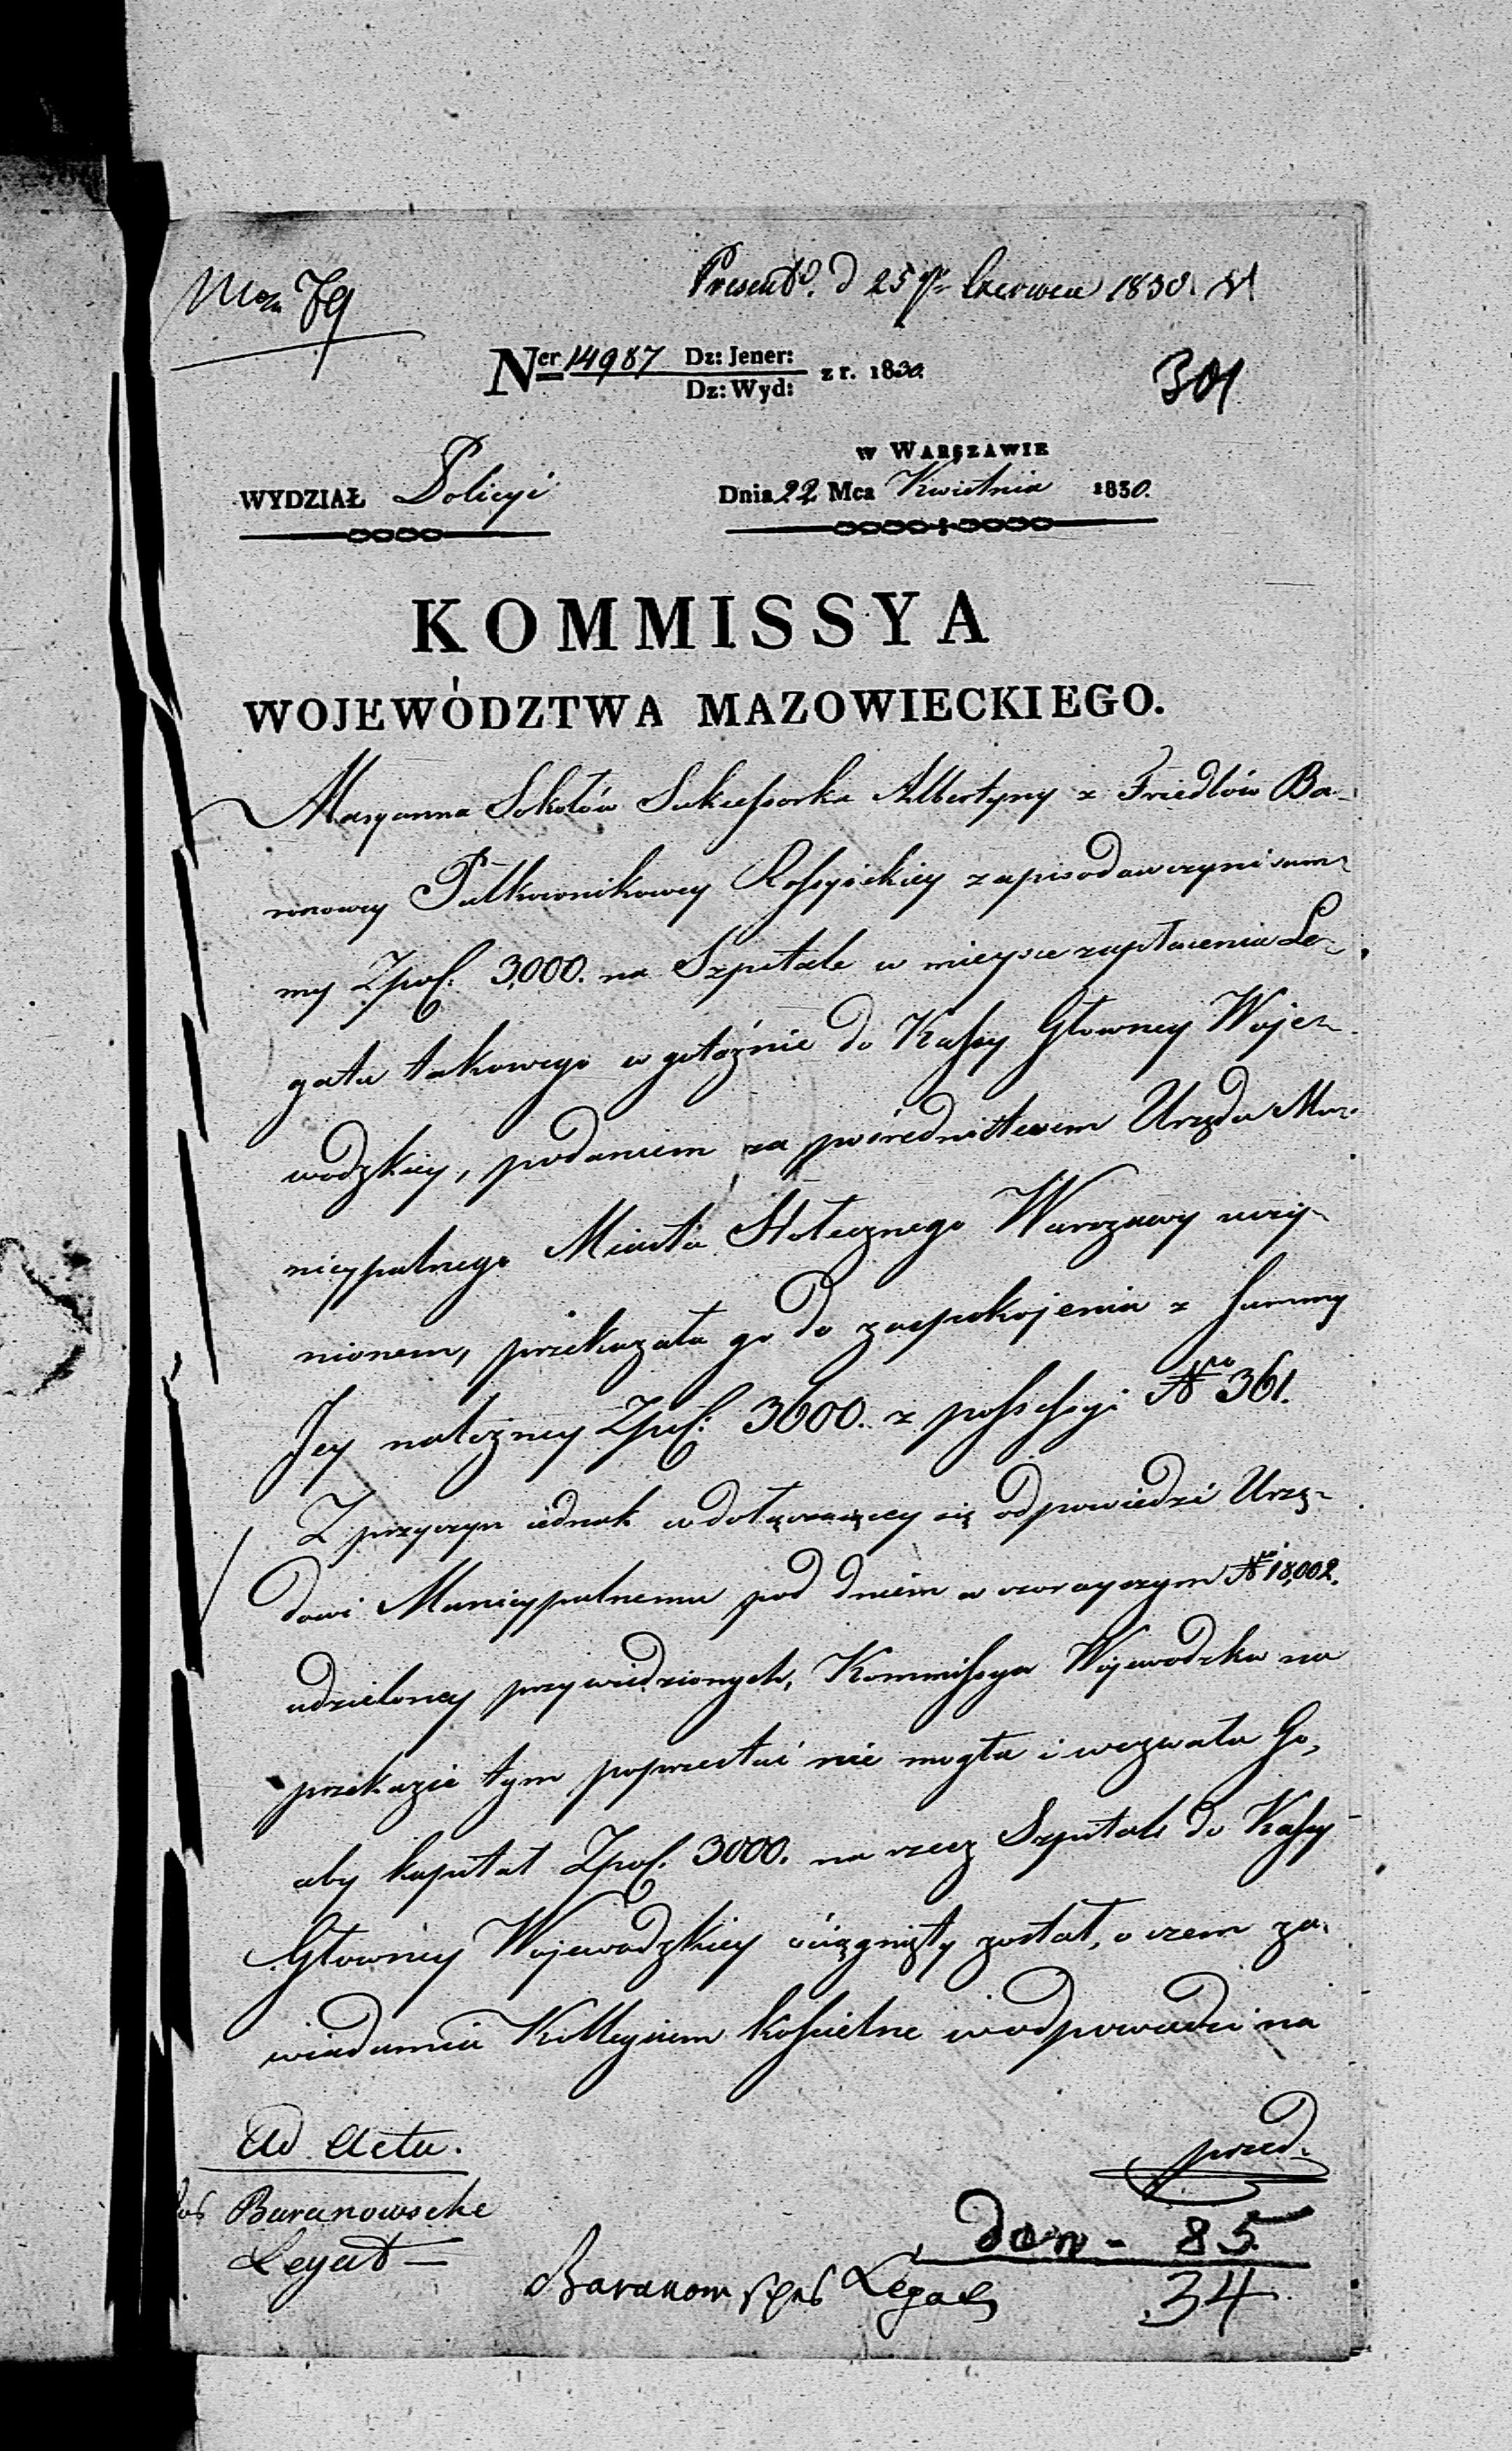 79
Present. d 25 Czerwca 1830
Ner 14987 Dz: Jener: z r. 1830.
Dz: Wyd:
301
w WARSZAWIE
WYDZIAŁ Policyi Dnia 22 Mca Kwietnia 1830.
KOMMISSYA
WOJEWÓDZTWA MAZOWIECKIEGO.
Maryanna Sokołów Sukcessorka Albertyny z Friedlów Ba-
ronowey Pułkownikowey Rossyiskiey zapisodawczyni sum-
my Zpol: 3,000. na Szpitale w mieysce zapłacenia Le-
gatu takowego w gotoźnie do Kassy Głowney Woje-
wodzkiey, podaniem za pośrednictwem Urzędu Mu-
nicypalnego Miasta Stołecznego Warszawy uczy-
nionem, przekazała go do zaspokojenia z Summy
Jey należney Zpol: 3600. z possessyi No 361.
Z przyczyn iednak w dołączaiącey się odpowiedzi Urzę-
dowi Municypalnemu pod dniem wczorayszym No 18,002.
udzieloney przywiedzionych, Kommissya Wojewodzka na
przekazie tym poprzestać nie mogła i wezwała Go,
aby kapitał Zpol. 3000. na rzecz Szpitali do Kassy
Głowney Wojewodzkiey ściągnięty został, o czem za-
wiadamia Kollegium Kościelne w odpowiedzi na
przed-
Ad Acta.
Baranowsche
Legat
don - 85
34
Baranow Legat